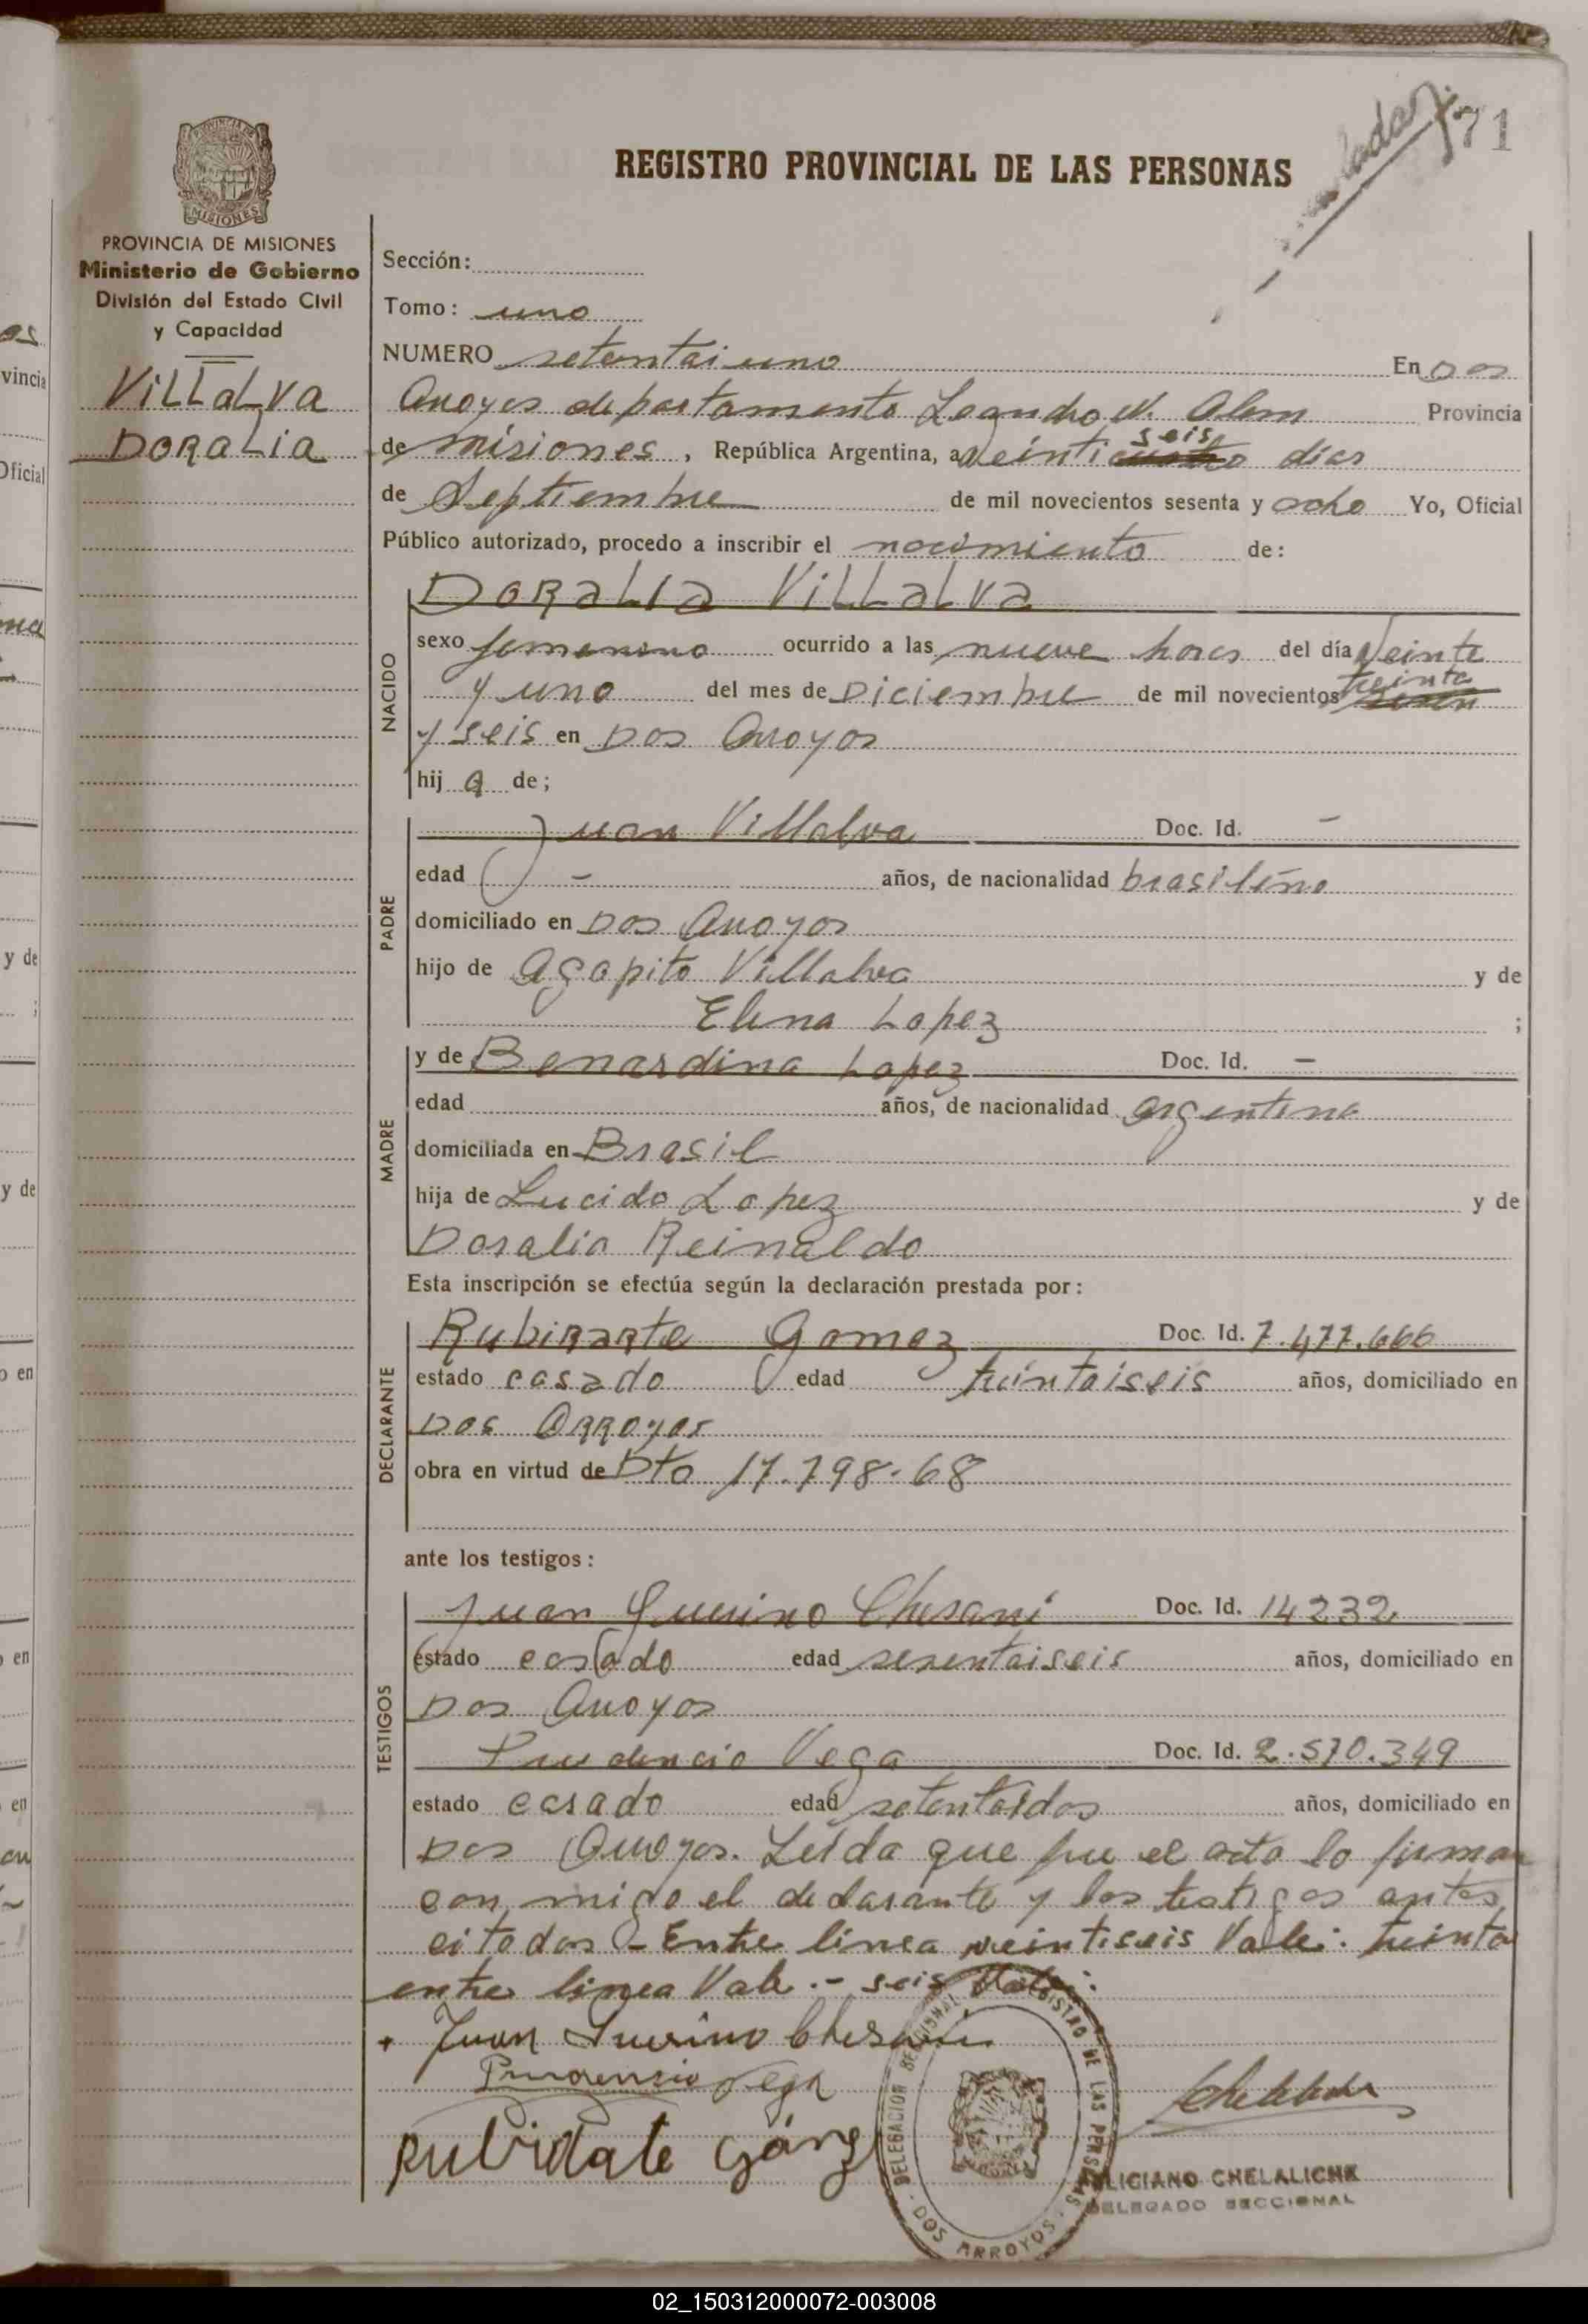 71
REGISTRO PROVINCIAL DE LAS PERSONAS
MISIONES
PROVINCIA DE MISIONES
Ministerio de Gobierno
División del Estado Civil
y Capacidad
VILLALVA
DORALIA
Sección:
Tomo: uno
NUMERO setentaiuno En Dos
Arroyos departamento Leandro N. Alem Provincia
de Misiones, República Argentina, a Veintiseis dias
de Septiembre de mil novecientos sesenta y ocho Yo, Oficial
Público autorizado, procedo a inscribir el nacimiento de:
NACIDO
DORALIA VILLALVA
sexo femenino ocurrido a las nueve horas del día Veinte
y uno del mes de Diciembre de mil novecientos treinta
y seis en Dos Arroyos
hija de;
PADRE
Juan Villalva Doc. Id. -
edad - años, de nacionalidad brasileño
domiciliado en Dos Arroyos
hijo de Agapito Villalva y de
Elena Lopez ;
MADRE
y de Benardina Lopez Doc. Id. -
edad años, de nacionalidad argentina
domiciliada en Brasil
hija de Lucido Lopez y de
Doralia Reinaldo
Esta inscripción se efectúa según la declaración prestada por:
DECLARANTE
Rubirarte Gomez Doc. Id. 7.477.666
estado casado edad treintaiseis años, domiciliado en
Dos Arroyos
obra en virtud de Dto 17.798-68
ante los testigos:
TESTIGOS
Juan Guerino Chesani Doc. Id. 14232
estado casado edad sesentaiseis años, domiciliado en
Dos Arroyos
Prudencio Vega Doc. Id. 2.570.349
estado casado edad setentaidos años, domiciliado en
Dos Arroyos. Leida que fue el acta lo firman
con migo el declarante y los testigos antes
citados - Entre linea veintiseis Vale: treinta
entre linea Vale.- seis Vale:
Juan Guerino Chesani
Prudencio Vega
DELEGACION SECCIONAL REGISTRO DE LAS PERSONAS
DOS ARROYOS
FELICIANO CHELALICHE
DELEGADO SECCIONAL
02_150312000072-003008